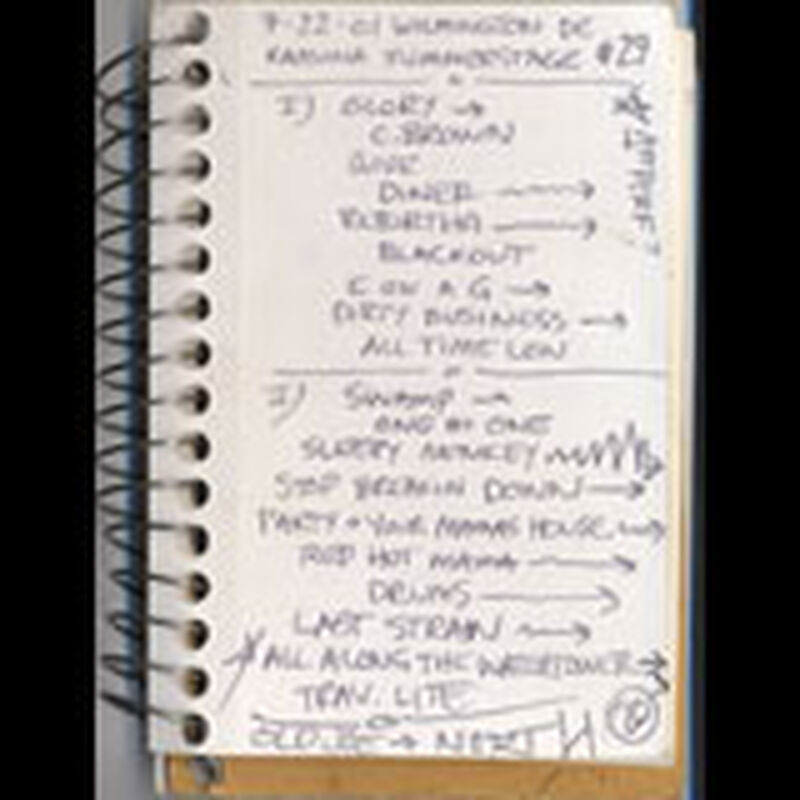 7-22-01 WILMINGTON DE
KAHUNA SUMMERSTAGE #29
I) GLORY →
C. BROWN
GIVE
DINER →
REBIRTHA →
BLACKOUT
C →
DIRTY BUSINESS →
ALL TIME LOW
II) SWAMP →
ONE
SLEEPY MONKEY
STOP BREAKIN DOWN →
PARTY @ YOUR MAMAS HOUSE →
RED HOT MAMA →
DRUMS →
LAST STRAW →
* ALL ALONG THE WATCHTOWER →
TRAV. LITE
→